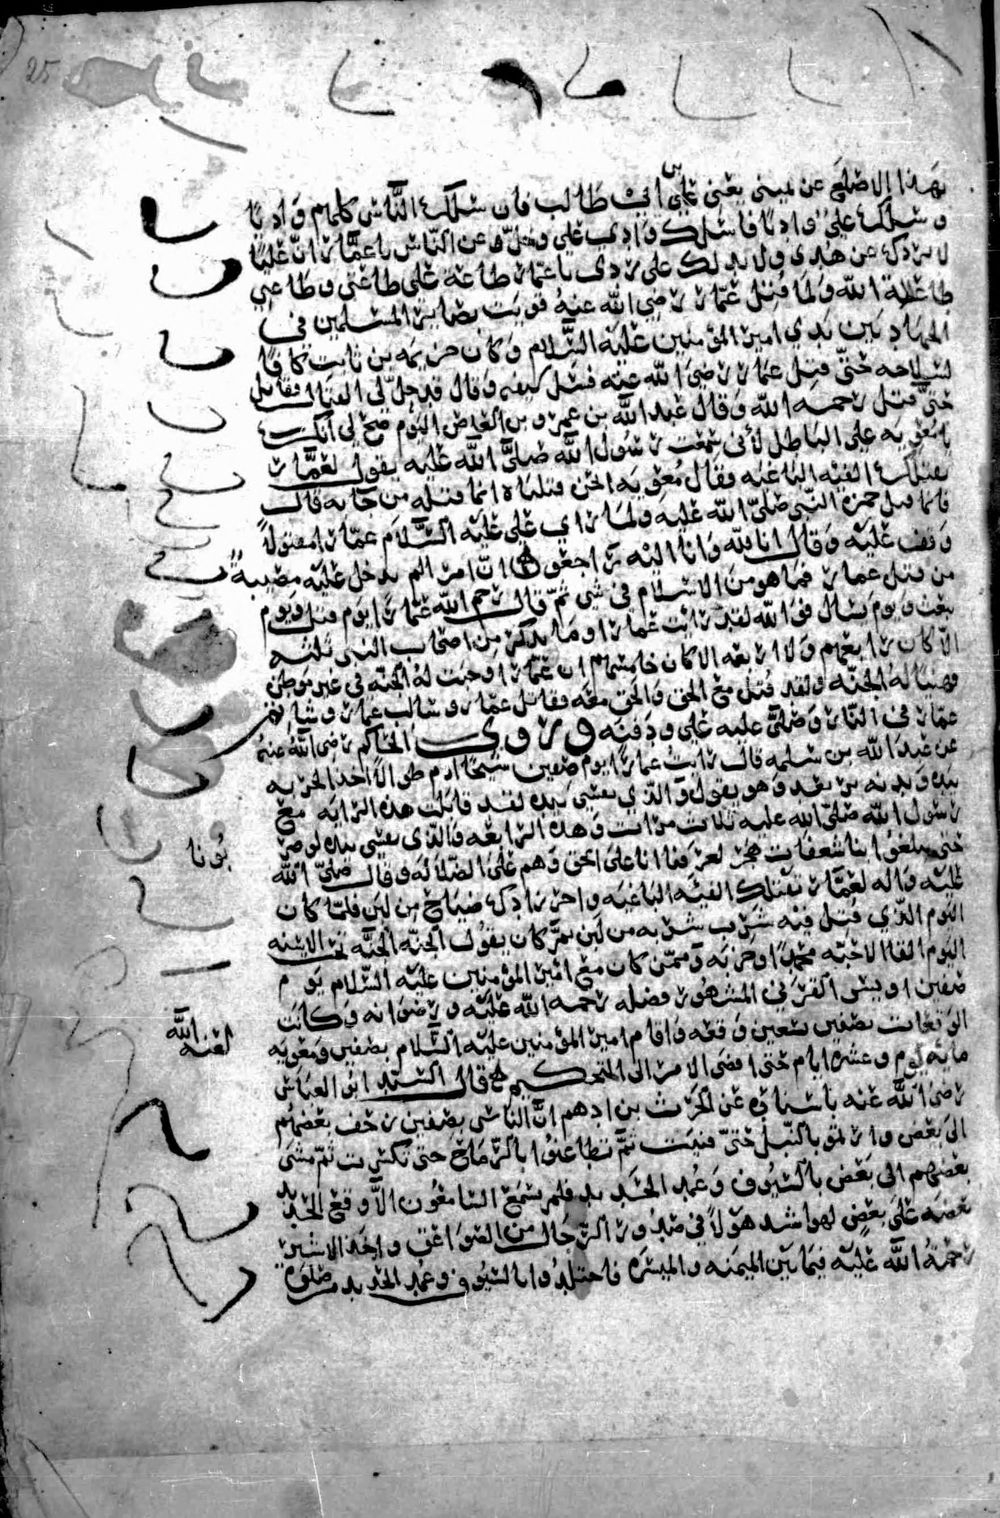 25
بهذا الاصلع عن يميني يعني علي بن ابي طالب فان سلك الناس كلهم واديًا
وسلك علي واديًا فاسلك وادي علي وخلّ عن الناس يا عمّار انّ عليًّا
لا يردك عن هدى ولا يدلك على ردى يا عمّار طاعة علي طاعتي وطاعتي
طاعة الله ولما قتل عمّار رضي الله عنه قويت بصاير المسلمين في
الجهاد بين يدي امير المؤمنين عليه السّلام وكان خزيمه بن ثابت كافًّا
لسلاحه حتّى قتل عمار رضي الله عنه فسل سيفه وقال قد حلّ لي القتال فقاتل
حتّى قتل رحمه الله وقال عبد الله بن عمرو بن العاص اليوم صح لي انك
يا معويه على الباطل لأني سمعت رسول الله صلّى الله عليه يقول لعمّار
يقتلك الفيه الباغيه فقال معويه انحن قتلناه انما قتله من جآ به قال
فانما قتل حمزه النبي صلّى الله عليه ولما راي علي عليه السّلام عمّار مقتولًا
وقف عليه وقال انا لله وانا اليه راجعون انّ امرا لم يدخل عليه مصيبةٌ
من قتل عمار فما هو من الاسلام في شي ثمّ قال رحم الله عمّارا يوم قتل ويوم
يبعث ويوم يسال فو الله لقد رايت عمارا وما يذكر من اصحاب النبي ثلثه
الّا كان رابعهم ولا اربعه الا كان خامسهم ان عمّارا وجبت له الجنّه في غير موطن
فهنيًا له الجنّه ولقد قتل مع الحق والحق معه وقاتل عمار وسالب عمار وشاتم
عمّار في النّار وصلّى عليه علي ودفنه وروى الحاكم رضي الله عنهُ
عن عبد الله بن سلمه قال رايت عمارًا يوم صفين شيخًا ادم طوالًا اخذ الحربه
بيده ويده ترعد وهو يقول والذي نفسي بيده لقد قاتلت هذه الرايه مع
رسول الله صلّى الله عليه ثلاث مرات وهذه الرابعه والذي نفسي بيده لو ضربونا
حتى يبلغوا بنا شعفات هجر لعرفنا انا على الحق وهم على الضلاله وقال صلّى الله
عليه واله لعمّار تقتلك الفئه الباغيه واخر زادك ضياح من لبن فلمّا كان
اليوم الذي قتل فيه شرب شربه من لبن ثمّ كان يقول الجنّه الجنّه تحت الاسنه
اليوم القا الاحبّه محمدًا وحزبه وممّن كان مع امير المؤمنين عليه السّلام يوم
صفين اويس القرني المشهور فضله رحمه الله عليه ورضوانه وكانت
الوقعات بصفين تسعين وقعه واقام امير المؤمنين عليه السّلام بصفين ومعويه
مايه يوم وعشره ايام حتى افضى الامر الى التحكيم قال السيد ابو العباس
رضي الله عنه باسناده عن الحرث بن ادهم انّ الناس بصفين زحف بعضهم
الى بعض وارتموا بالنّبل حتّى فنيت ثمّ تطاعنوا بالرّماح حتى تكسّرت ثمّ مشى
بعضهم الى بعض بالسّيوف وعُمد الحديد فلم يسمع السامعون الّا وقع الحديد
بعضه على بعض لهو اشد هولًا في صدور الرّجال من الصّواعق واخذ الاشتر
رحمةُ الله عليه فيما بين الميمنه والميسره فاجتلدوا بالسّيوف وعُمد الحديد من صلوة
بُونا
لعنه الله